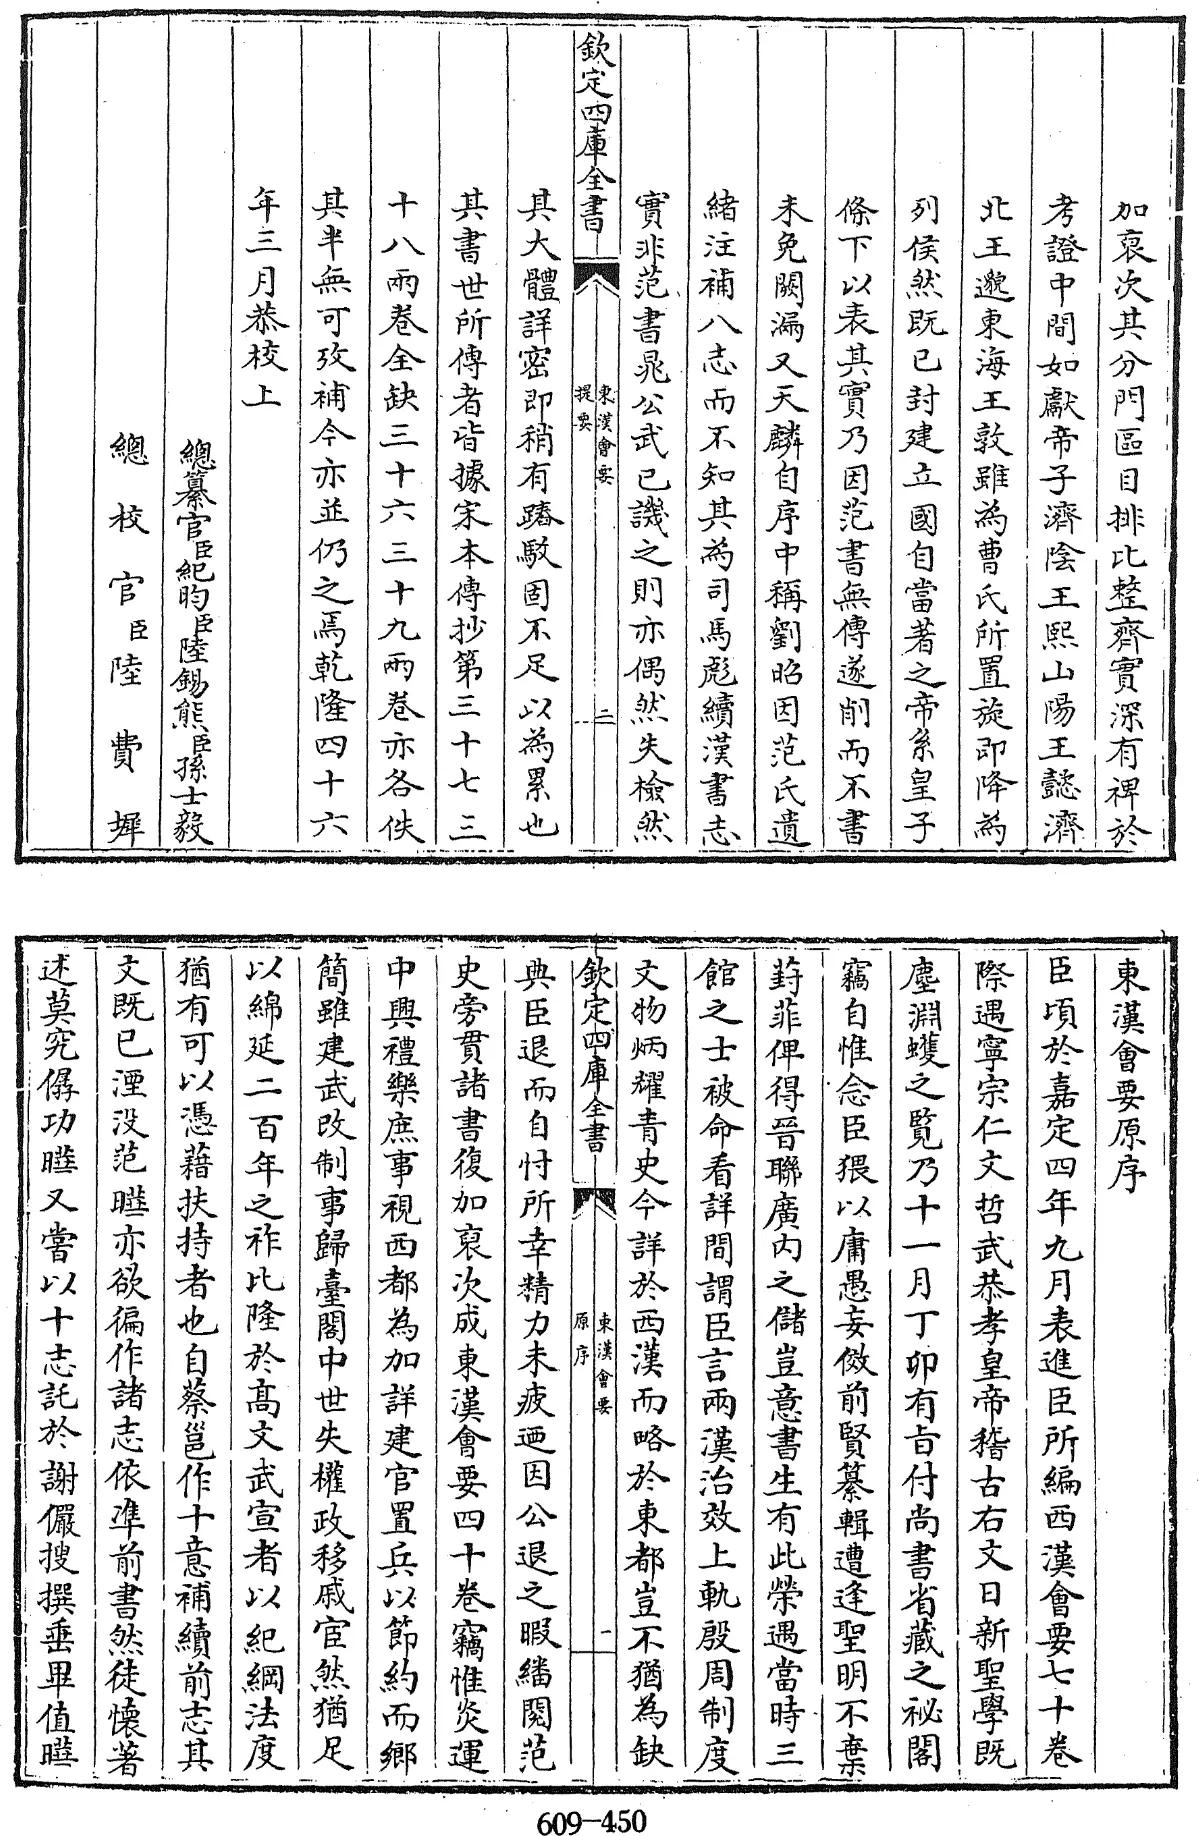 加裒次其分門區目排比整齊實深有裨於
考證中間如獻帝子濟陰王熙山陽王懿濟
北王邈東海王敦雖為曹氏所置旋即降為
列侯然既已封建立國自當著之帝系皇子
條下以表其實乃因范書無傳遂削而不書
未免闕漏又天麟自序中稱劉昭因范氏遺
緒注補八志而不知其為司馬彪續漢書志
實非范書晁公武已譏之則亦偶然失檢然
欽定四庫全書
東漢會要
提要
二
其大體詳密即稍有蹖駮固不足以為累也
其書世所傳者皆據宋本傳抄第三十七三
十八兩卷全缺三十六三十九兩卷亦各佚
其半無可攷補今亦並仍之焉乾隆四十六
年三月恭校上
總纂官臣紀昀臣陸錫熊臣孫士毅
總校官臣陸費墀
東漢會要原序
臣頃於嘉定四年九月表進臣所編西漢會要七十卷
際遇寧宗仁文哲武恭孝皇帝稽古右文日新聖學既
塵淵蠖之覽乃十一月丁卯有旨付尚書省藏之祕閣
竊自惟念臣猥以庸愚妄傚前賢纂輯遭逢聖明不棄
葑菲俾得晉聯廣内之儲豈意書生有此榮遇當時三
館之士被命看詳間謂臣言兩漢治效上軌殷周制度
文物炳耀青史今詳於西漢而略於東都豈不猶為缺
欽定四庫全書
東漢會要
原序
一
典臣退而自忖所幸精力未疲迺因公退之暇繙閱范
史旁貫諸書復加裒次成東漢會要四十卷竊惟炎運
中興禮樂庶事視西都為加詳建官置兵以節約而鄉
簡雖建武改制事歸臺閣中世失權政移戚宦然猶足
以綿延二百年之祚比隆於高文武宣者以紀綱法度
猶有可以憑藉扶持者也自蔡邕作十意補續前志其
文既已湮没范曄亦欲徧作諸志依準前書然徒懐著
述莫究僝功曄又嘗以十志託於謝儼搜撰垂畢值曄
609-450